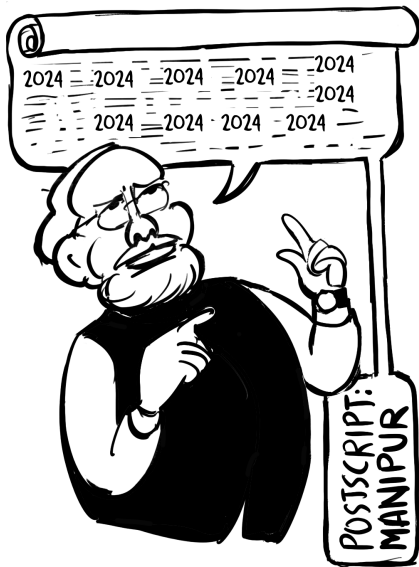 2024
2024 2024 2024 2024
2024
2024 2024 2024 2024
POSTSCRIPT:
MANIPUR